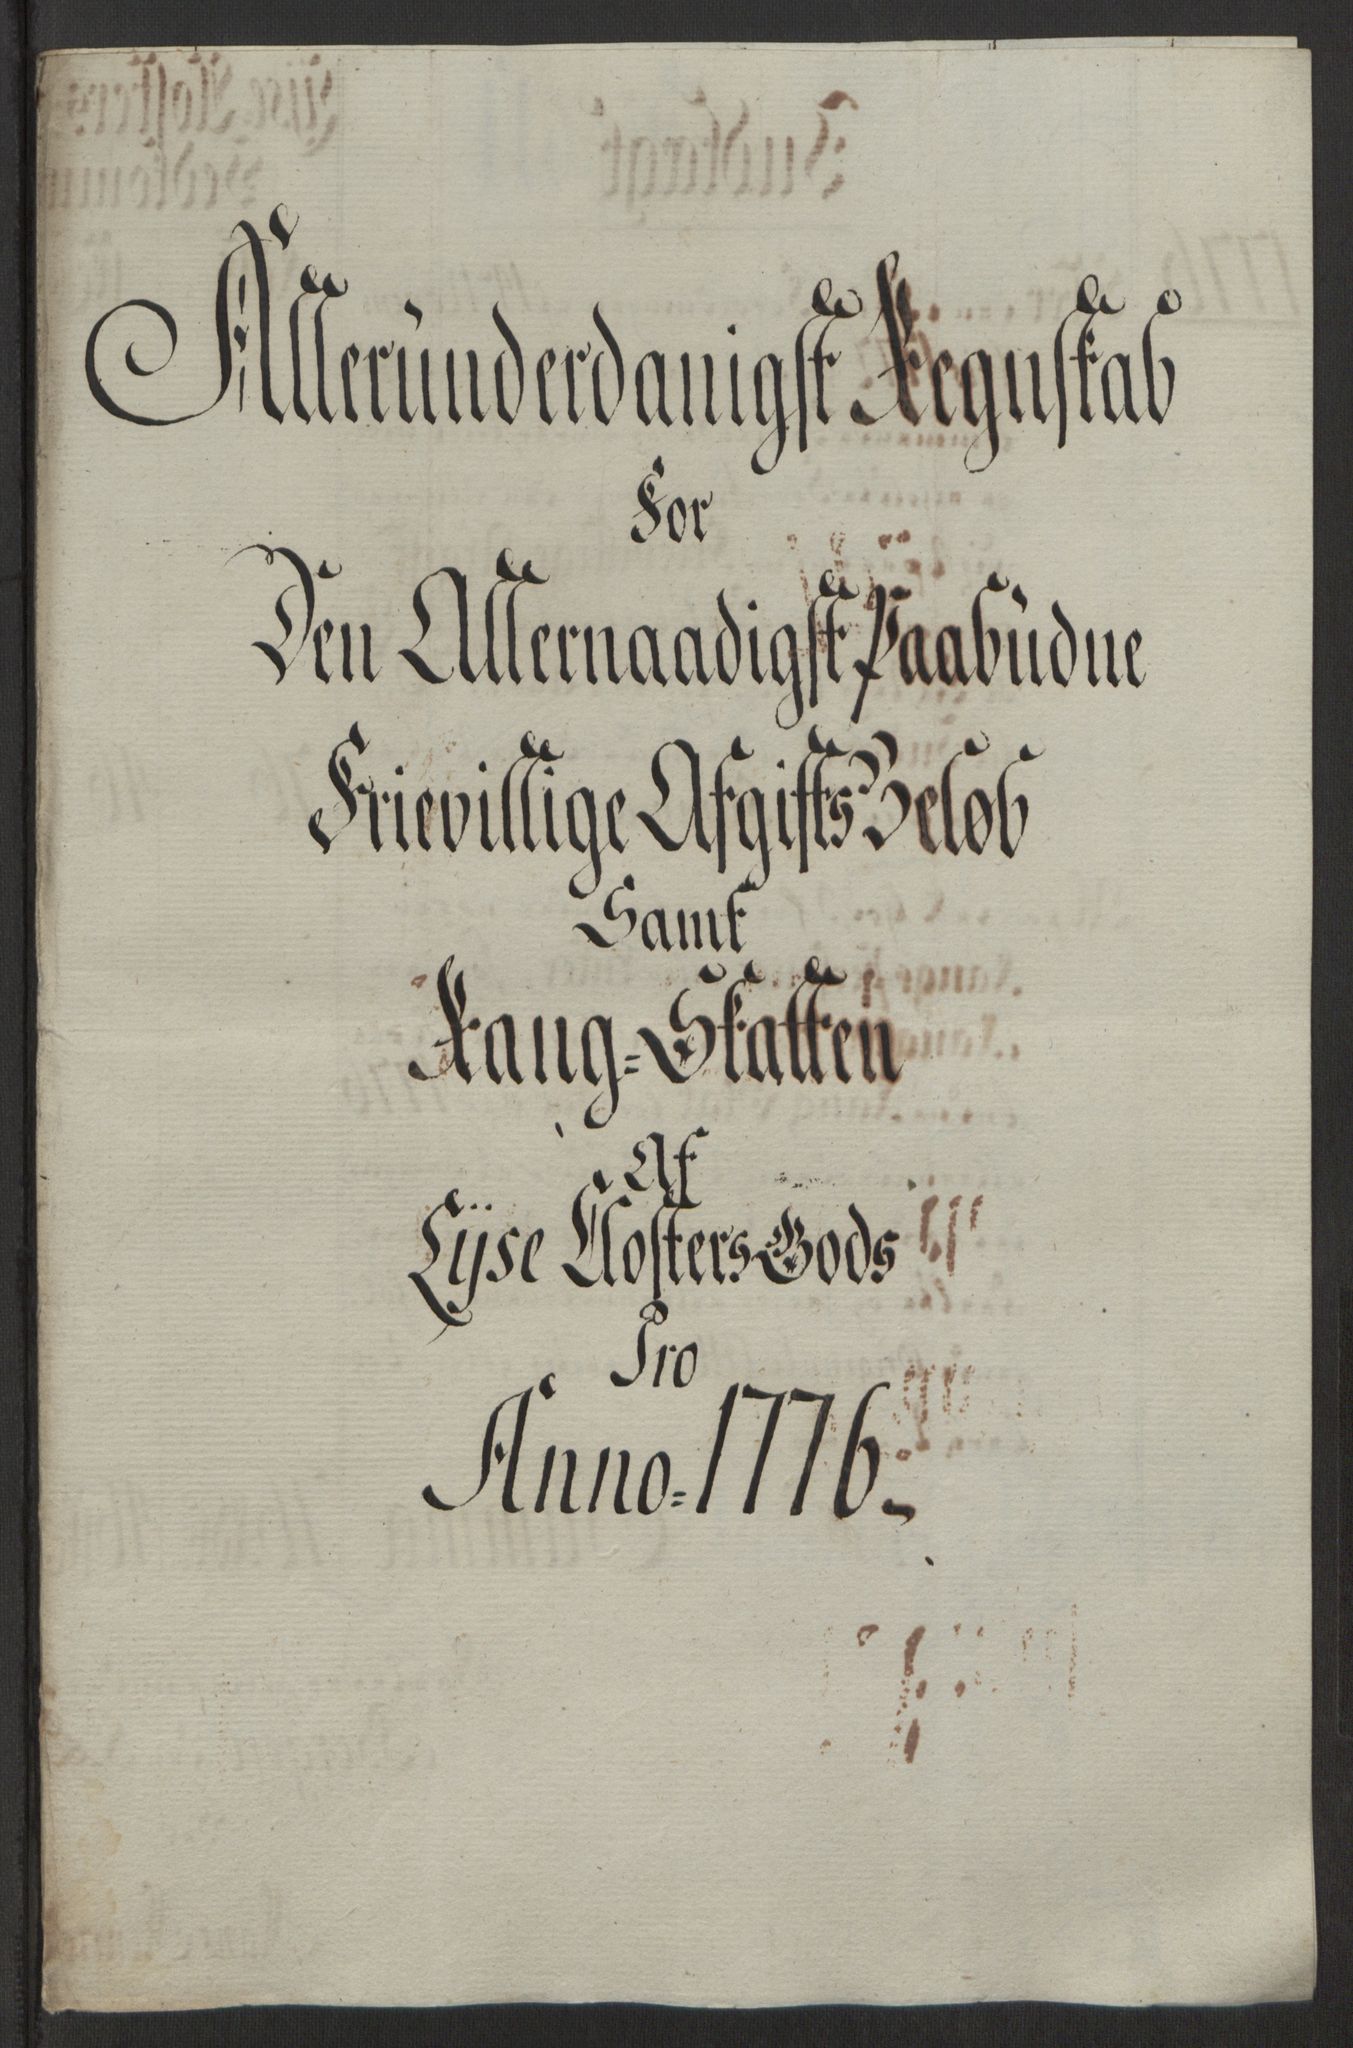 Allerùnderdanigst Regnskab
For
Den Allernaadigst Paabùdne
Frievillige Afgifts Beløb
Samt
Rang=Skatten
Af
Lÿse Closters Gods
Pro
Anno=1776